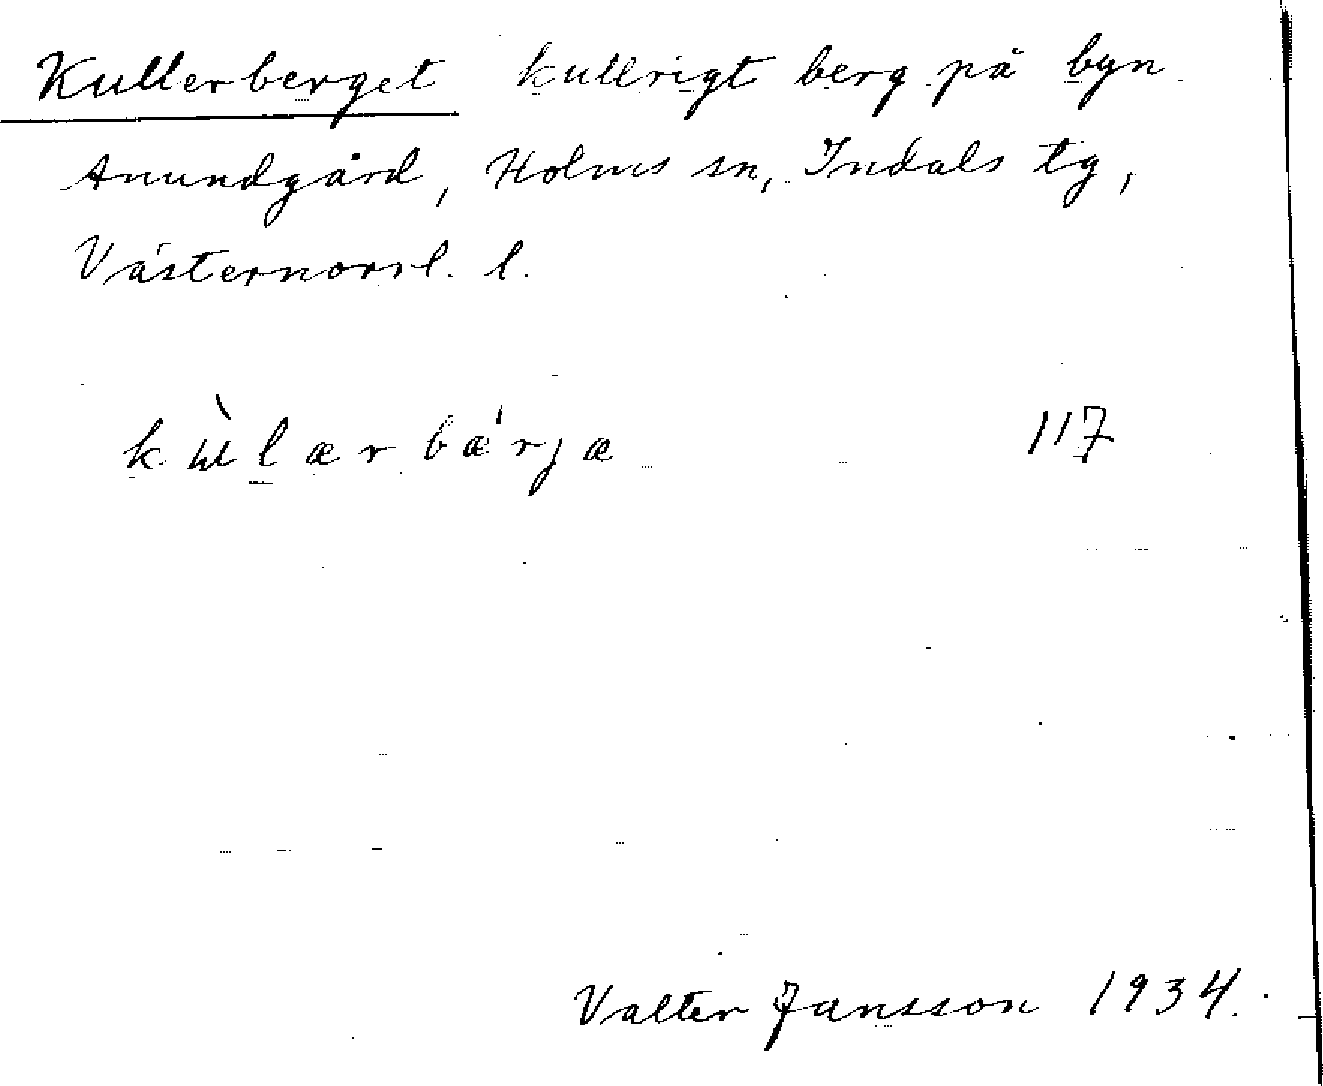 Kullerberget kullrigt berg på byn
Anundgård, Holms sn, Indals tg,
Västernorrl. l.
kùlærbæ'rja 117
Valter Jansson 1934.